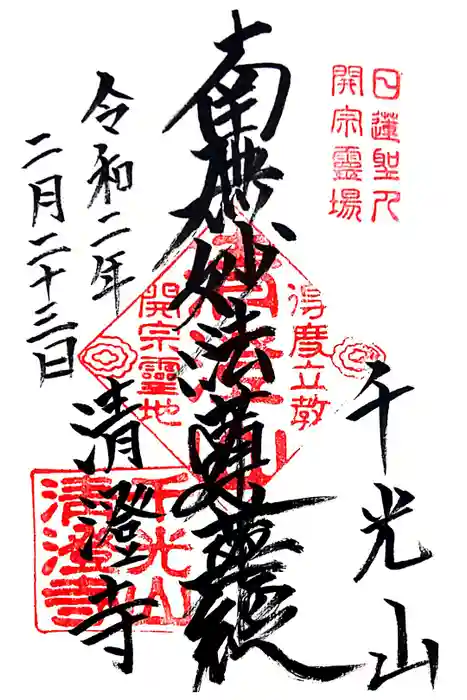 日蓮聖人
開宗靈場
千光山
南無妙法蓮華経
得度立教
開宗靈地
清澄寺
千光山
清澄寺
令和二年
二月二十三日